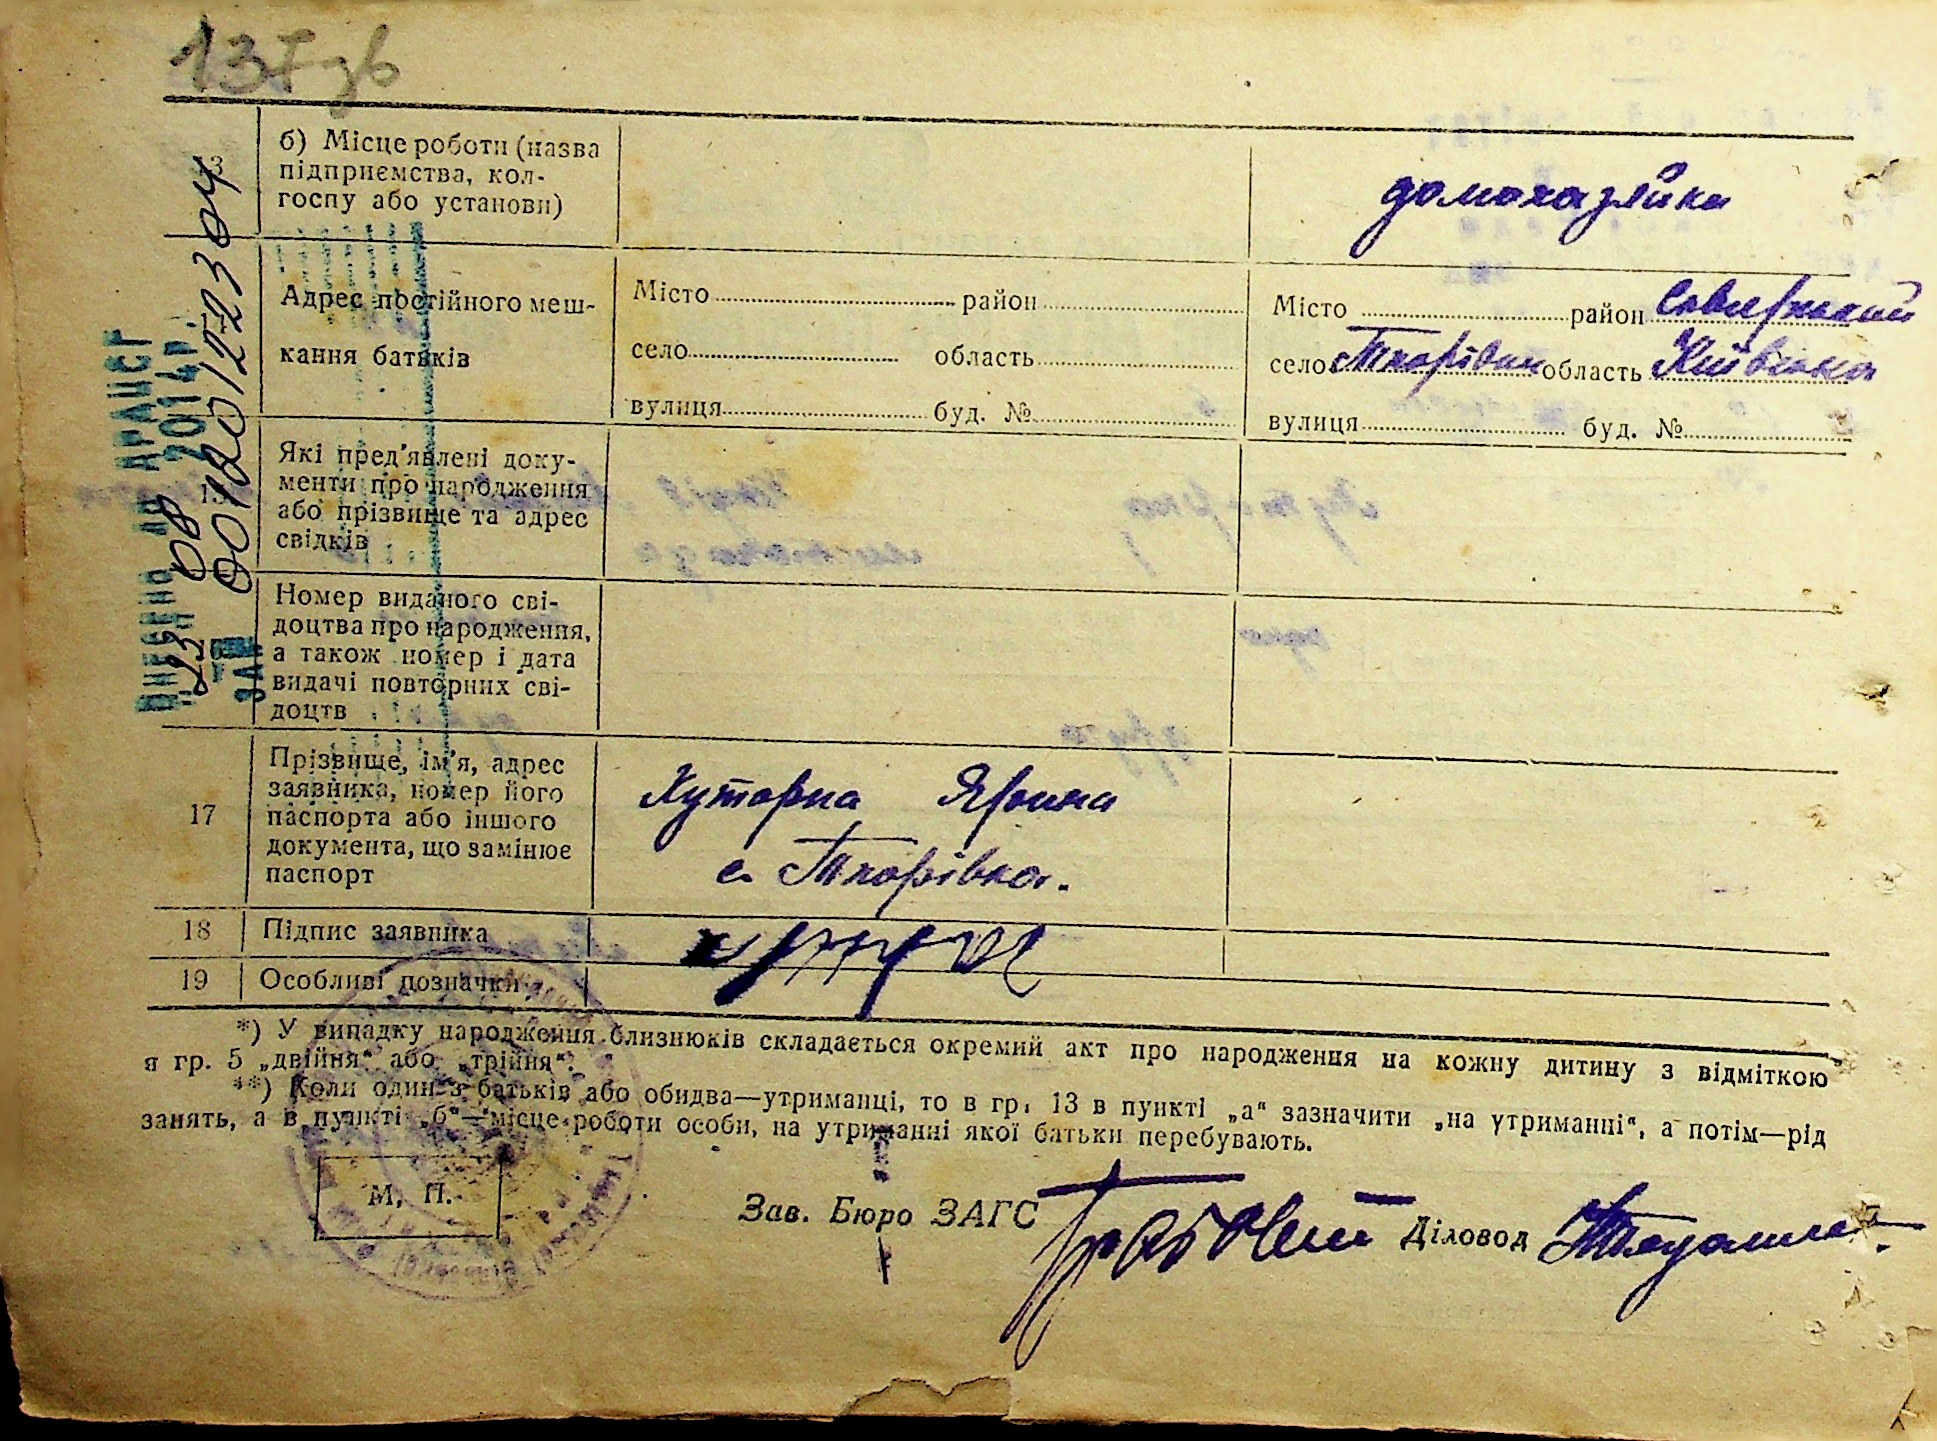 137 зв
13
б) Місце роботи (назва
підприємства, кол-
госпу або установи)
домохазяйка
Адрес постійного меш-
кання батьків
Місто район
село область
вулиця буд. №
Місто район
село Ткорівка область Київська
вулиця буд. №
15
Які пред'явлені доку-
менти про народження
або прізвище та адрес
свідків
Номер виданого сві-
доцтва про народження,
а також номер і дата
видачі повторних сві-
доцтв
17
Прізвище, ім'я, адрес
заявника, номер його
паспорта або іншого
документа, що замінює
паспорт
Хуторна Ярина
с. Ткорівка.
18
Підпис заявника
19
Особливі позначки
*) У випадку народження близнюків складається окремий акт про народження на кожну дитину з відміткою
в гр. 5 „двійня“ або „трійня“.
**) Коли один з батьків або обидва—утриманці, то в гр. 13 в пункті „а“ зазначити „на утриманні“, а потім—рід
занять, а в пункті „б“—місце роботи особи, на утриманні якої батьки перебувають.
М. П.
Зав. Бюро ЗАГС
Діловод
Внесено до ДРАЦСГ
23 08 2014р.
00120122304
ЗАГ